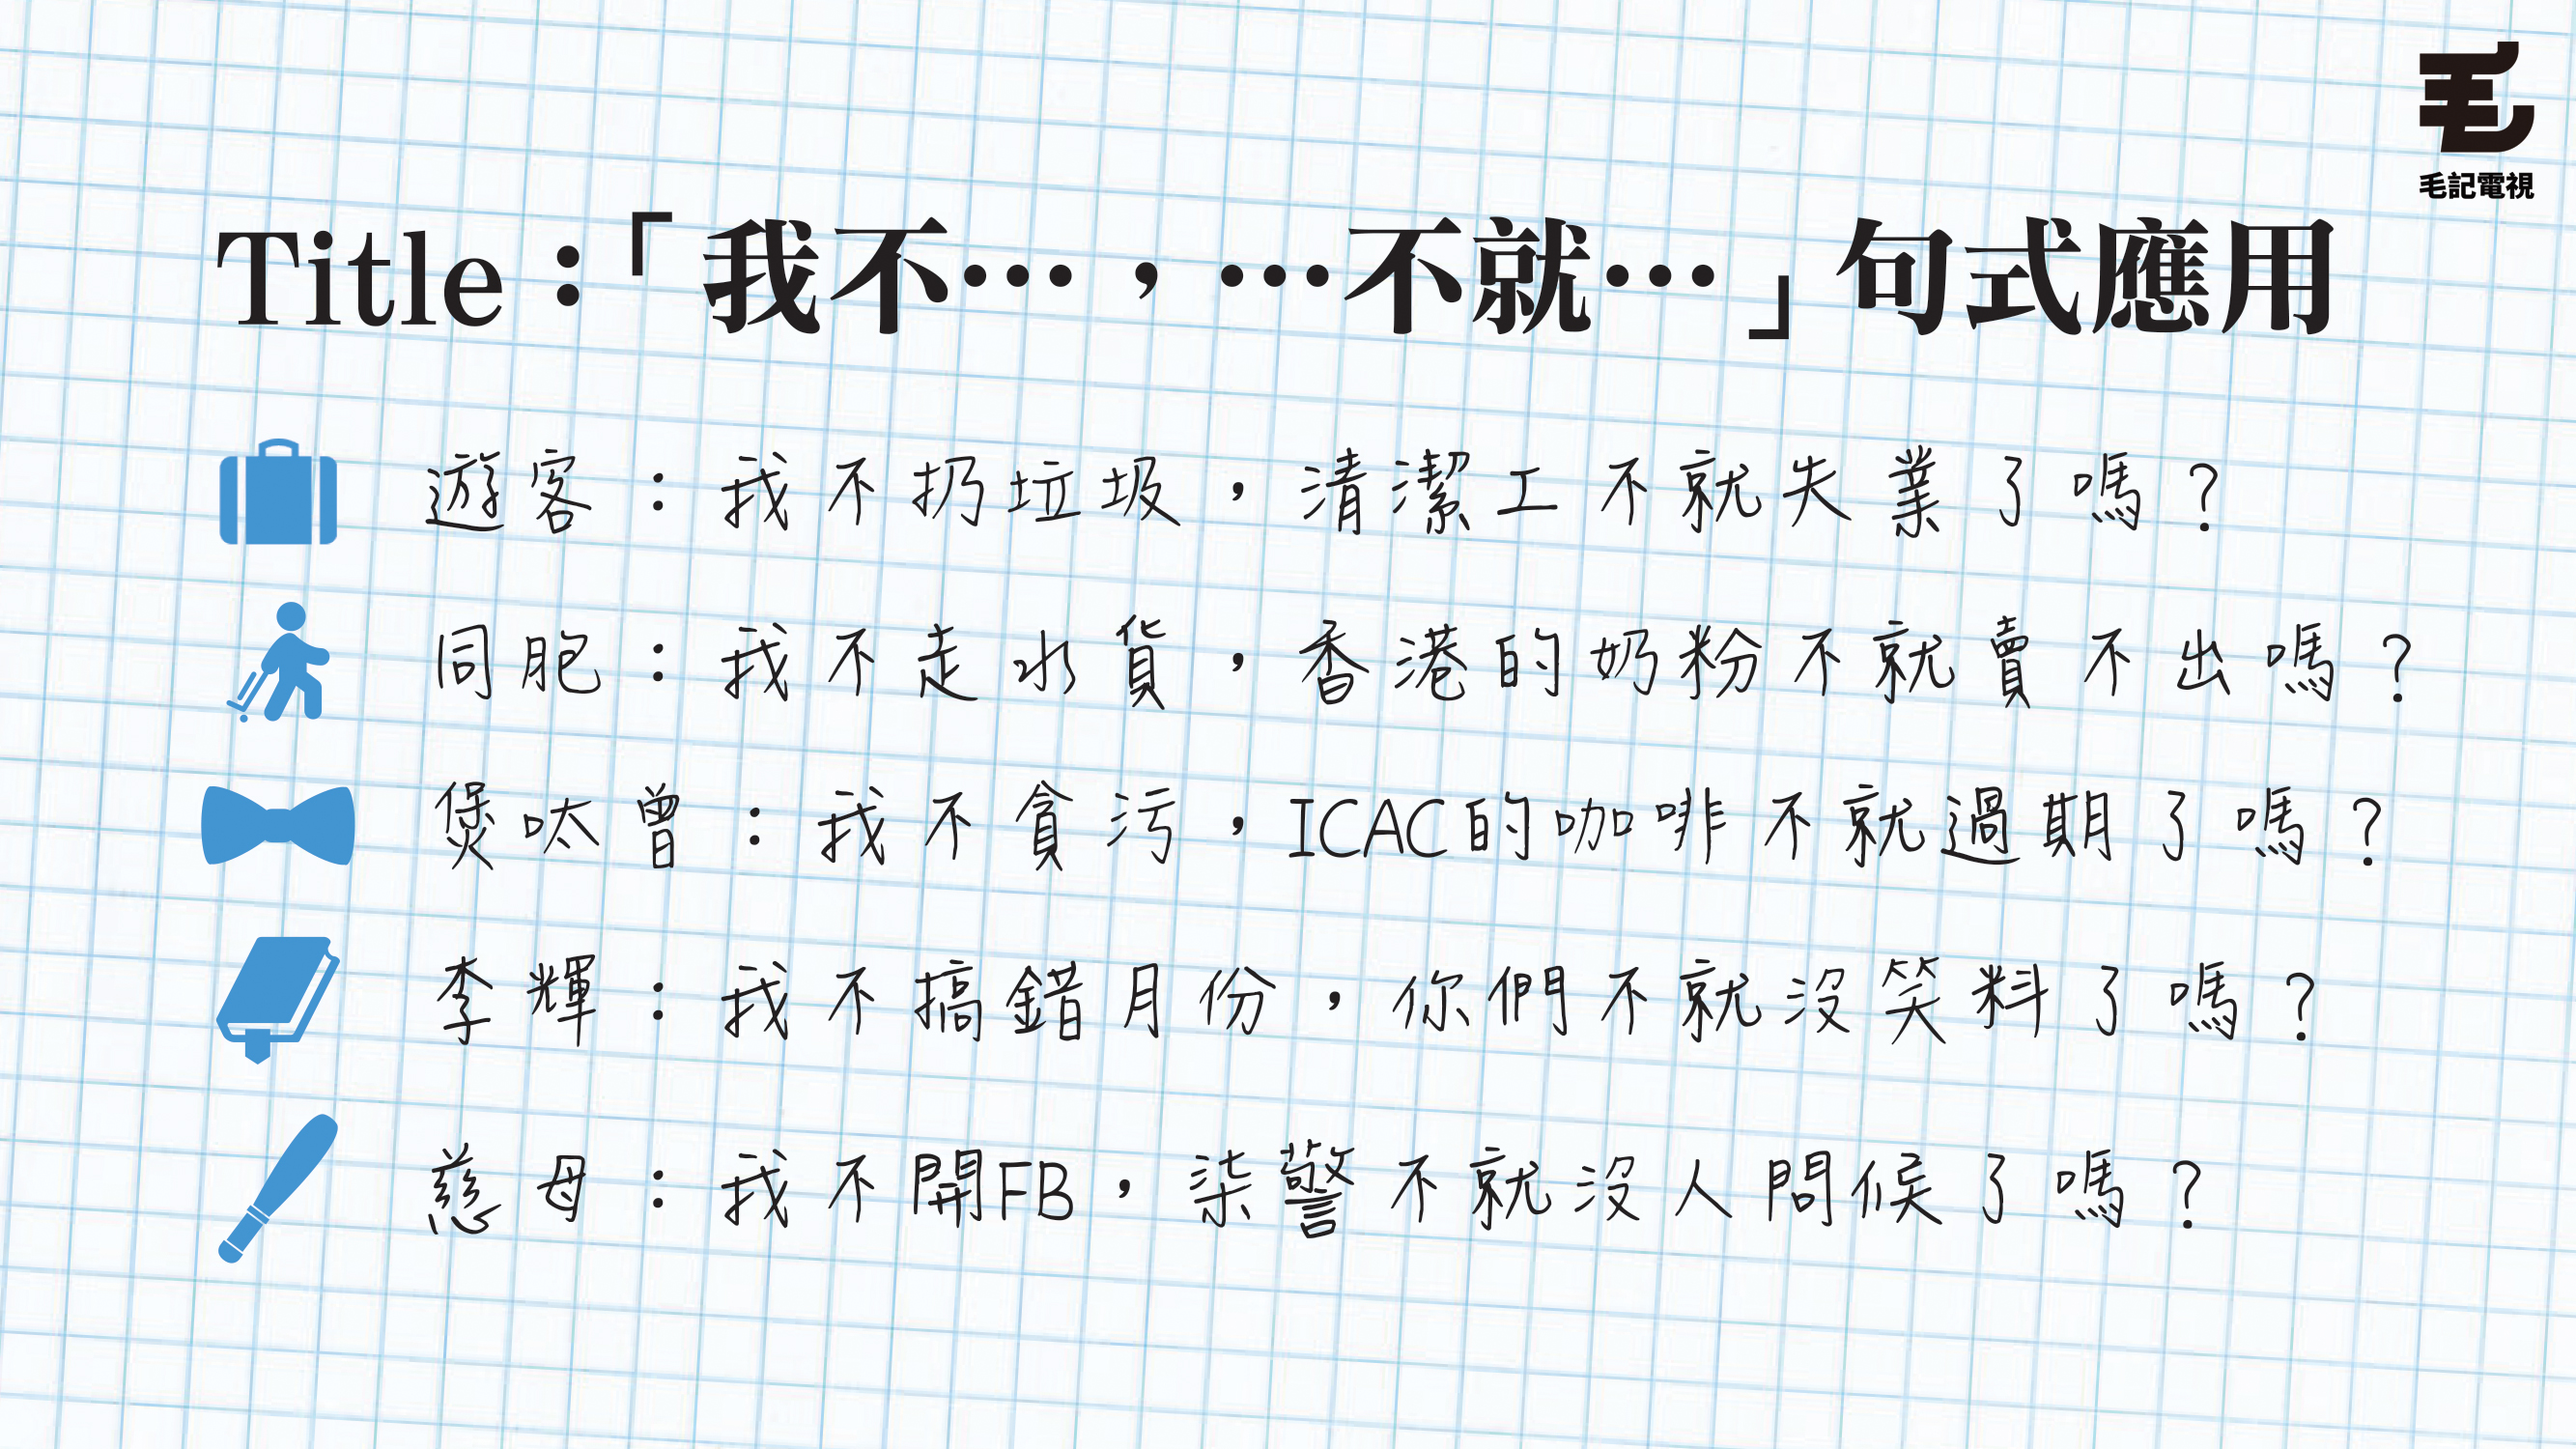 毛記電視
Title:「我不…,…不就…」句式應用
遊客:我不扔垃圾,清潔工不就失業了嗎?
同胞:我不走水貨,香港的奶粉不就賣不出嗎?
煲呔曾:我不貪污,ICAC的咖啡不就過期了嗎?
李輝:我不搞錯月份,你們不就沒笑料了嗎?
慈母:我不開FB,柒警不就沒人問候了嗎?